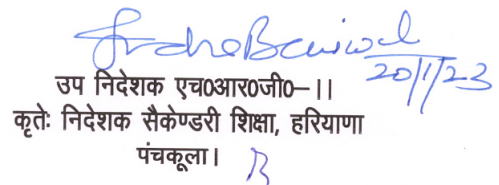 20/1/23
उप निदेशक एच0आर0जी0–।।
कृतेः निदेशक सैकेण्डरी शिक्षा, हरियाणा
पंचकूला।